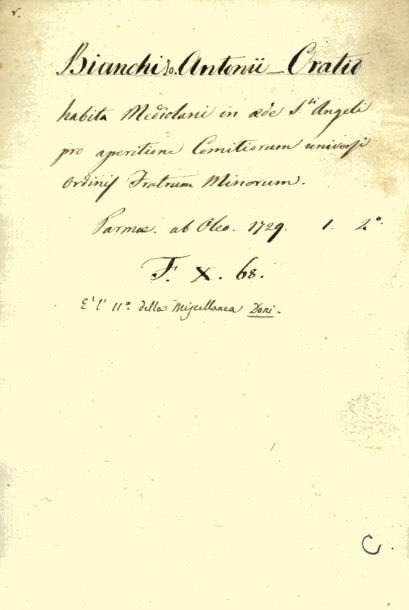 v.
Bianchi Jo. Antonii _ Oratio
habita Mediolani in æde S.ti Angeli
pro aperitione Comitiorum universi
Ordinis Fratrum Minorum.
Parmæ. ab Oleo. 1729. 1. 2.°
F. X. 68.
E' l' 11° della Miscellanea Doni.
C.